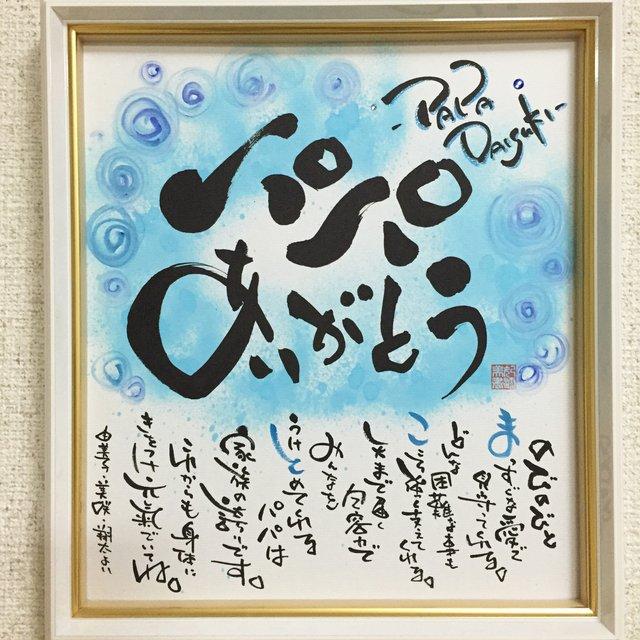 -PAPA
Daisuki-
パパ
ありがとう
のびのびと
まっすぐな愛で
見守ってくれる。
どんな困難な事も
支えてくれる。
包容力で
みんなを
うけとめてくれる
パパは
家族の誇りです。
これからも身体に
きをつけて元気でいてね。